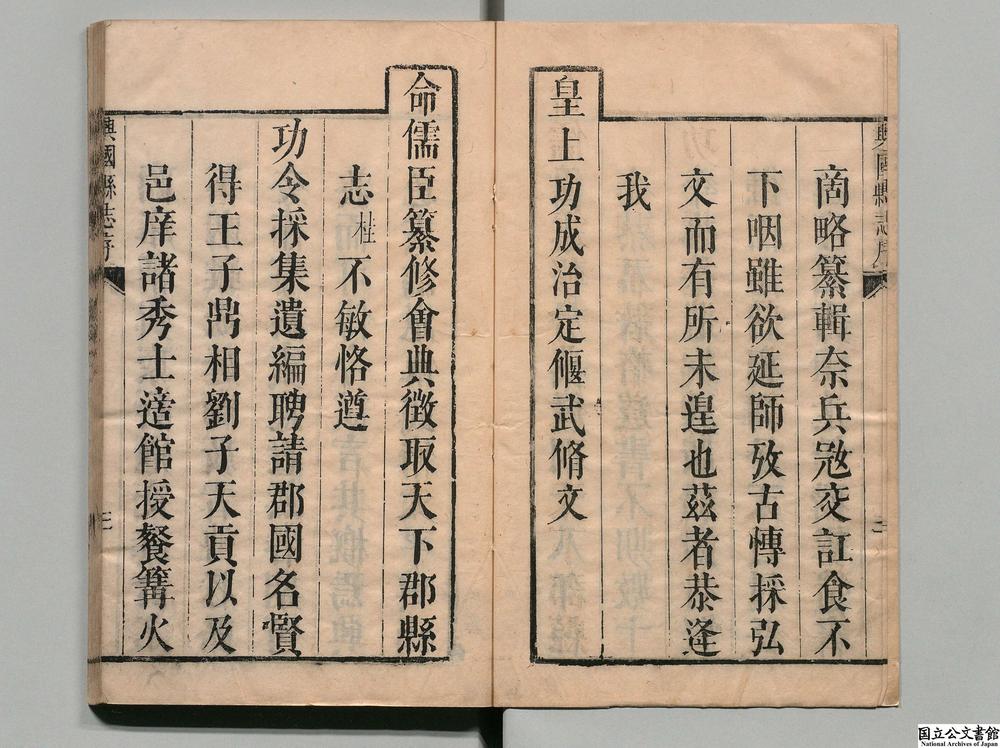 興國縣志序
商略纂輯奈兵寇交訌食不
下咽雖欲延師攷古慱採弘
文而有所未遑也茲者恭逢
我
皇上功成治定偃武脩文
三
命儒臣纂修會典徵取天下郡縣
志桂不敏恪遵
功令採集遺編聘請郡國名賢
得王子鼎相劉子天貢以及
邑庠諸秀士適館授餐篝火
興國縣志序
三
国立公文書館
National Archives of Japan